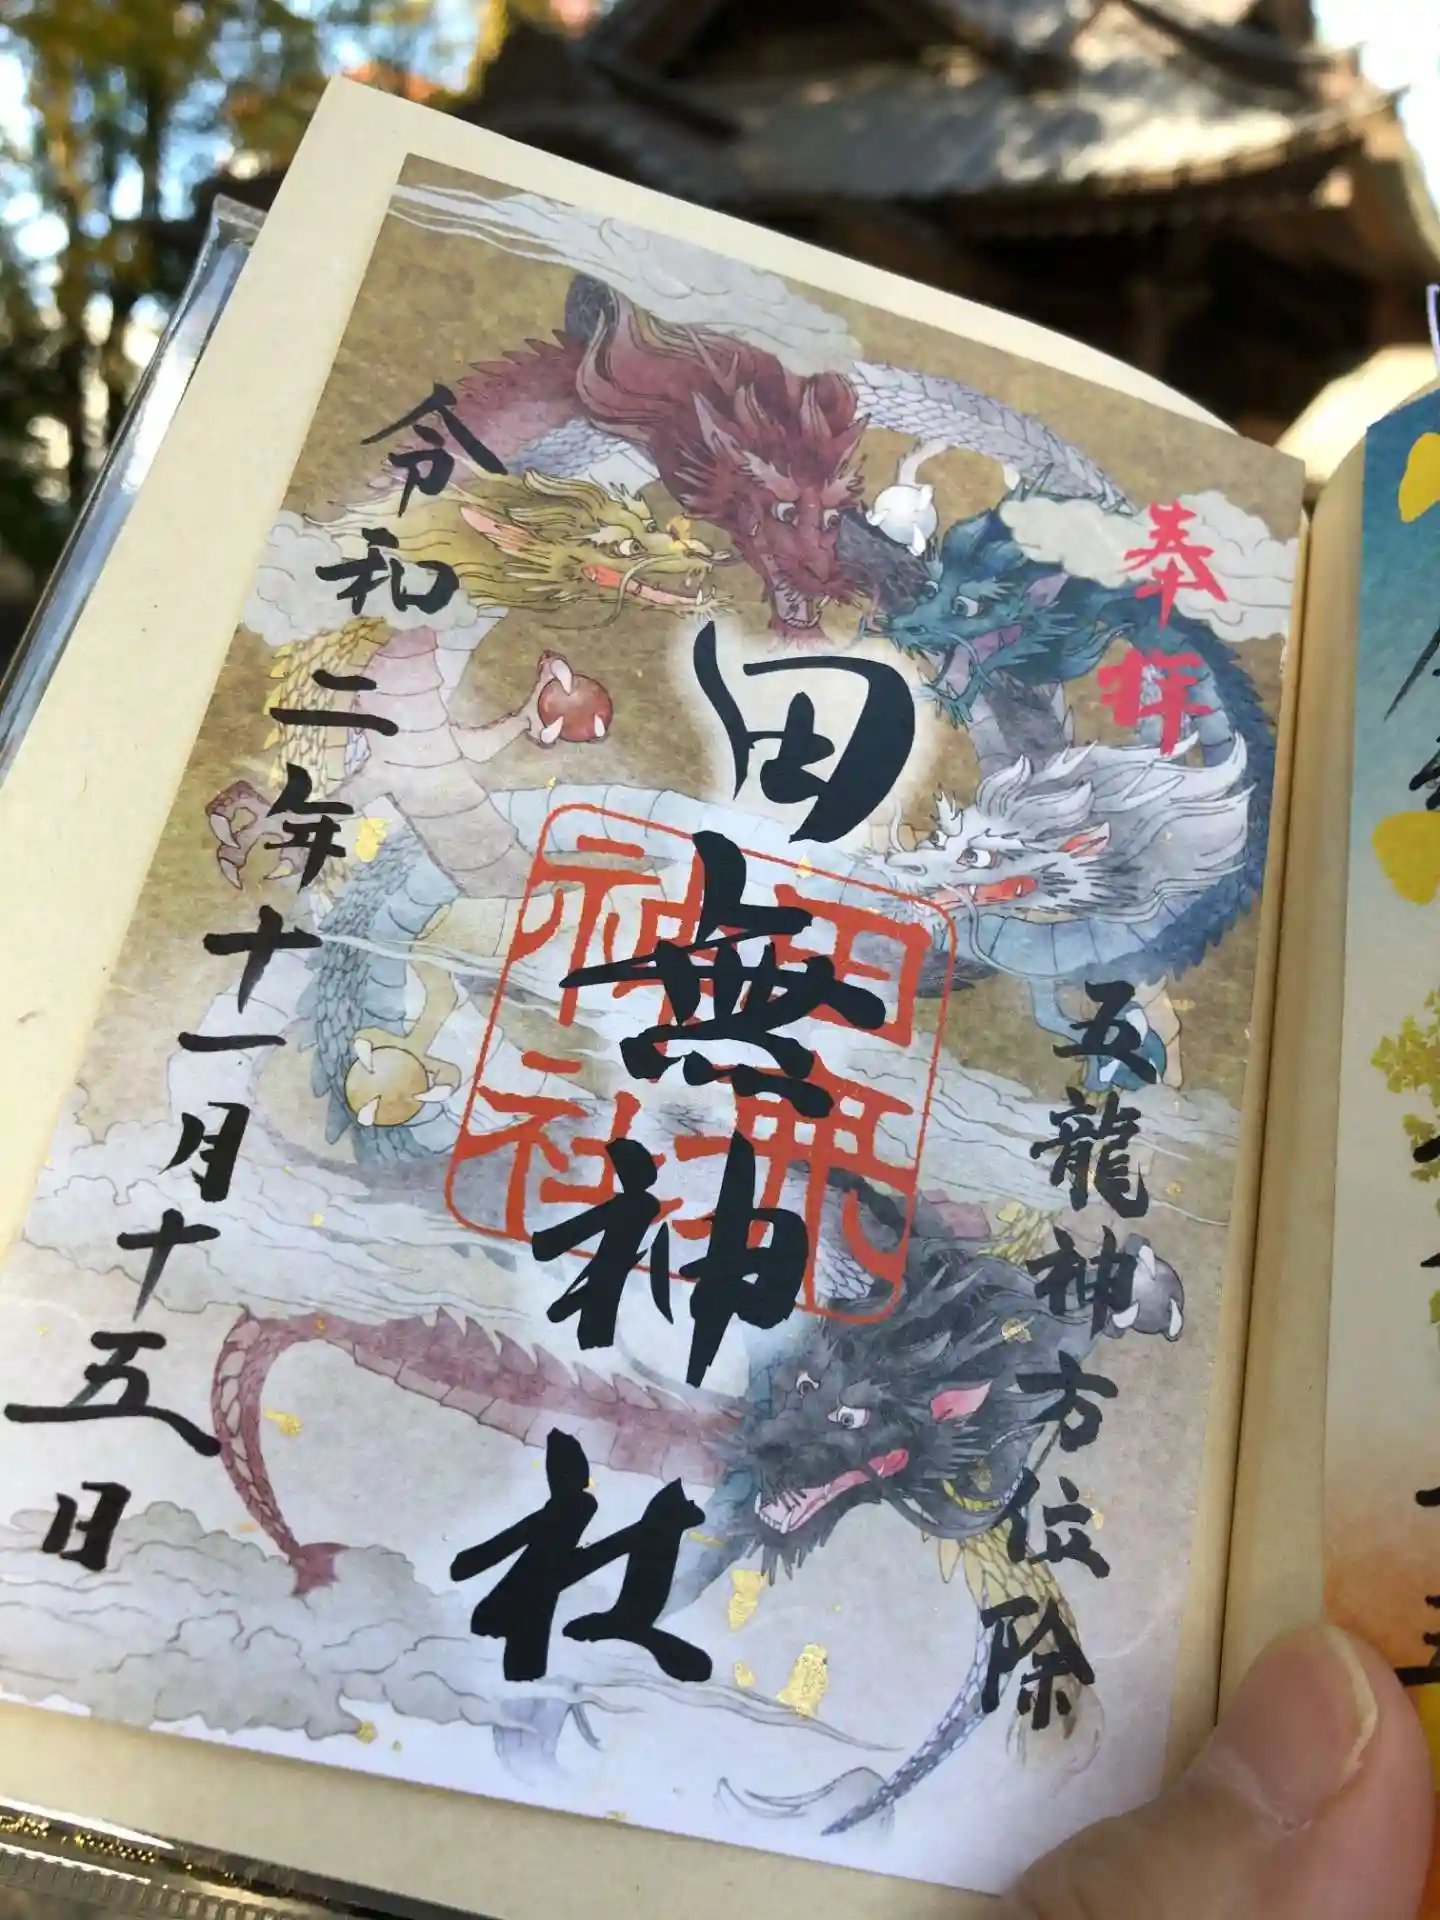 奉拝
五龍神方位除
田無神社
田無
神社
令和二年十一月十五日